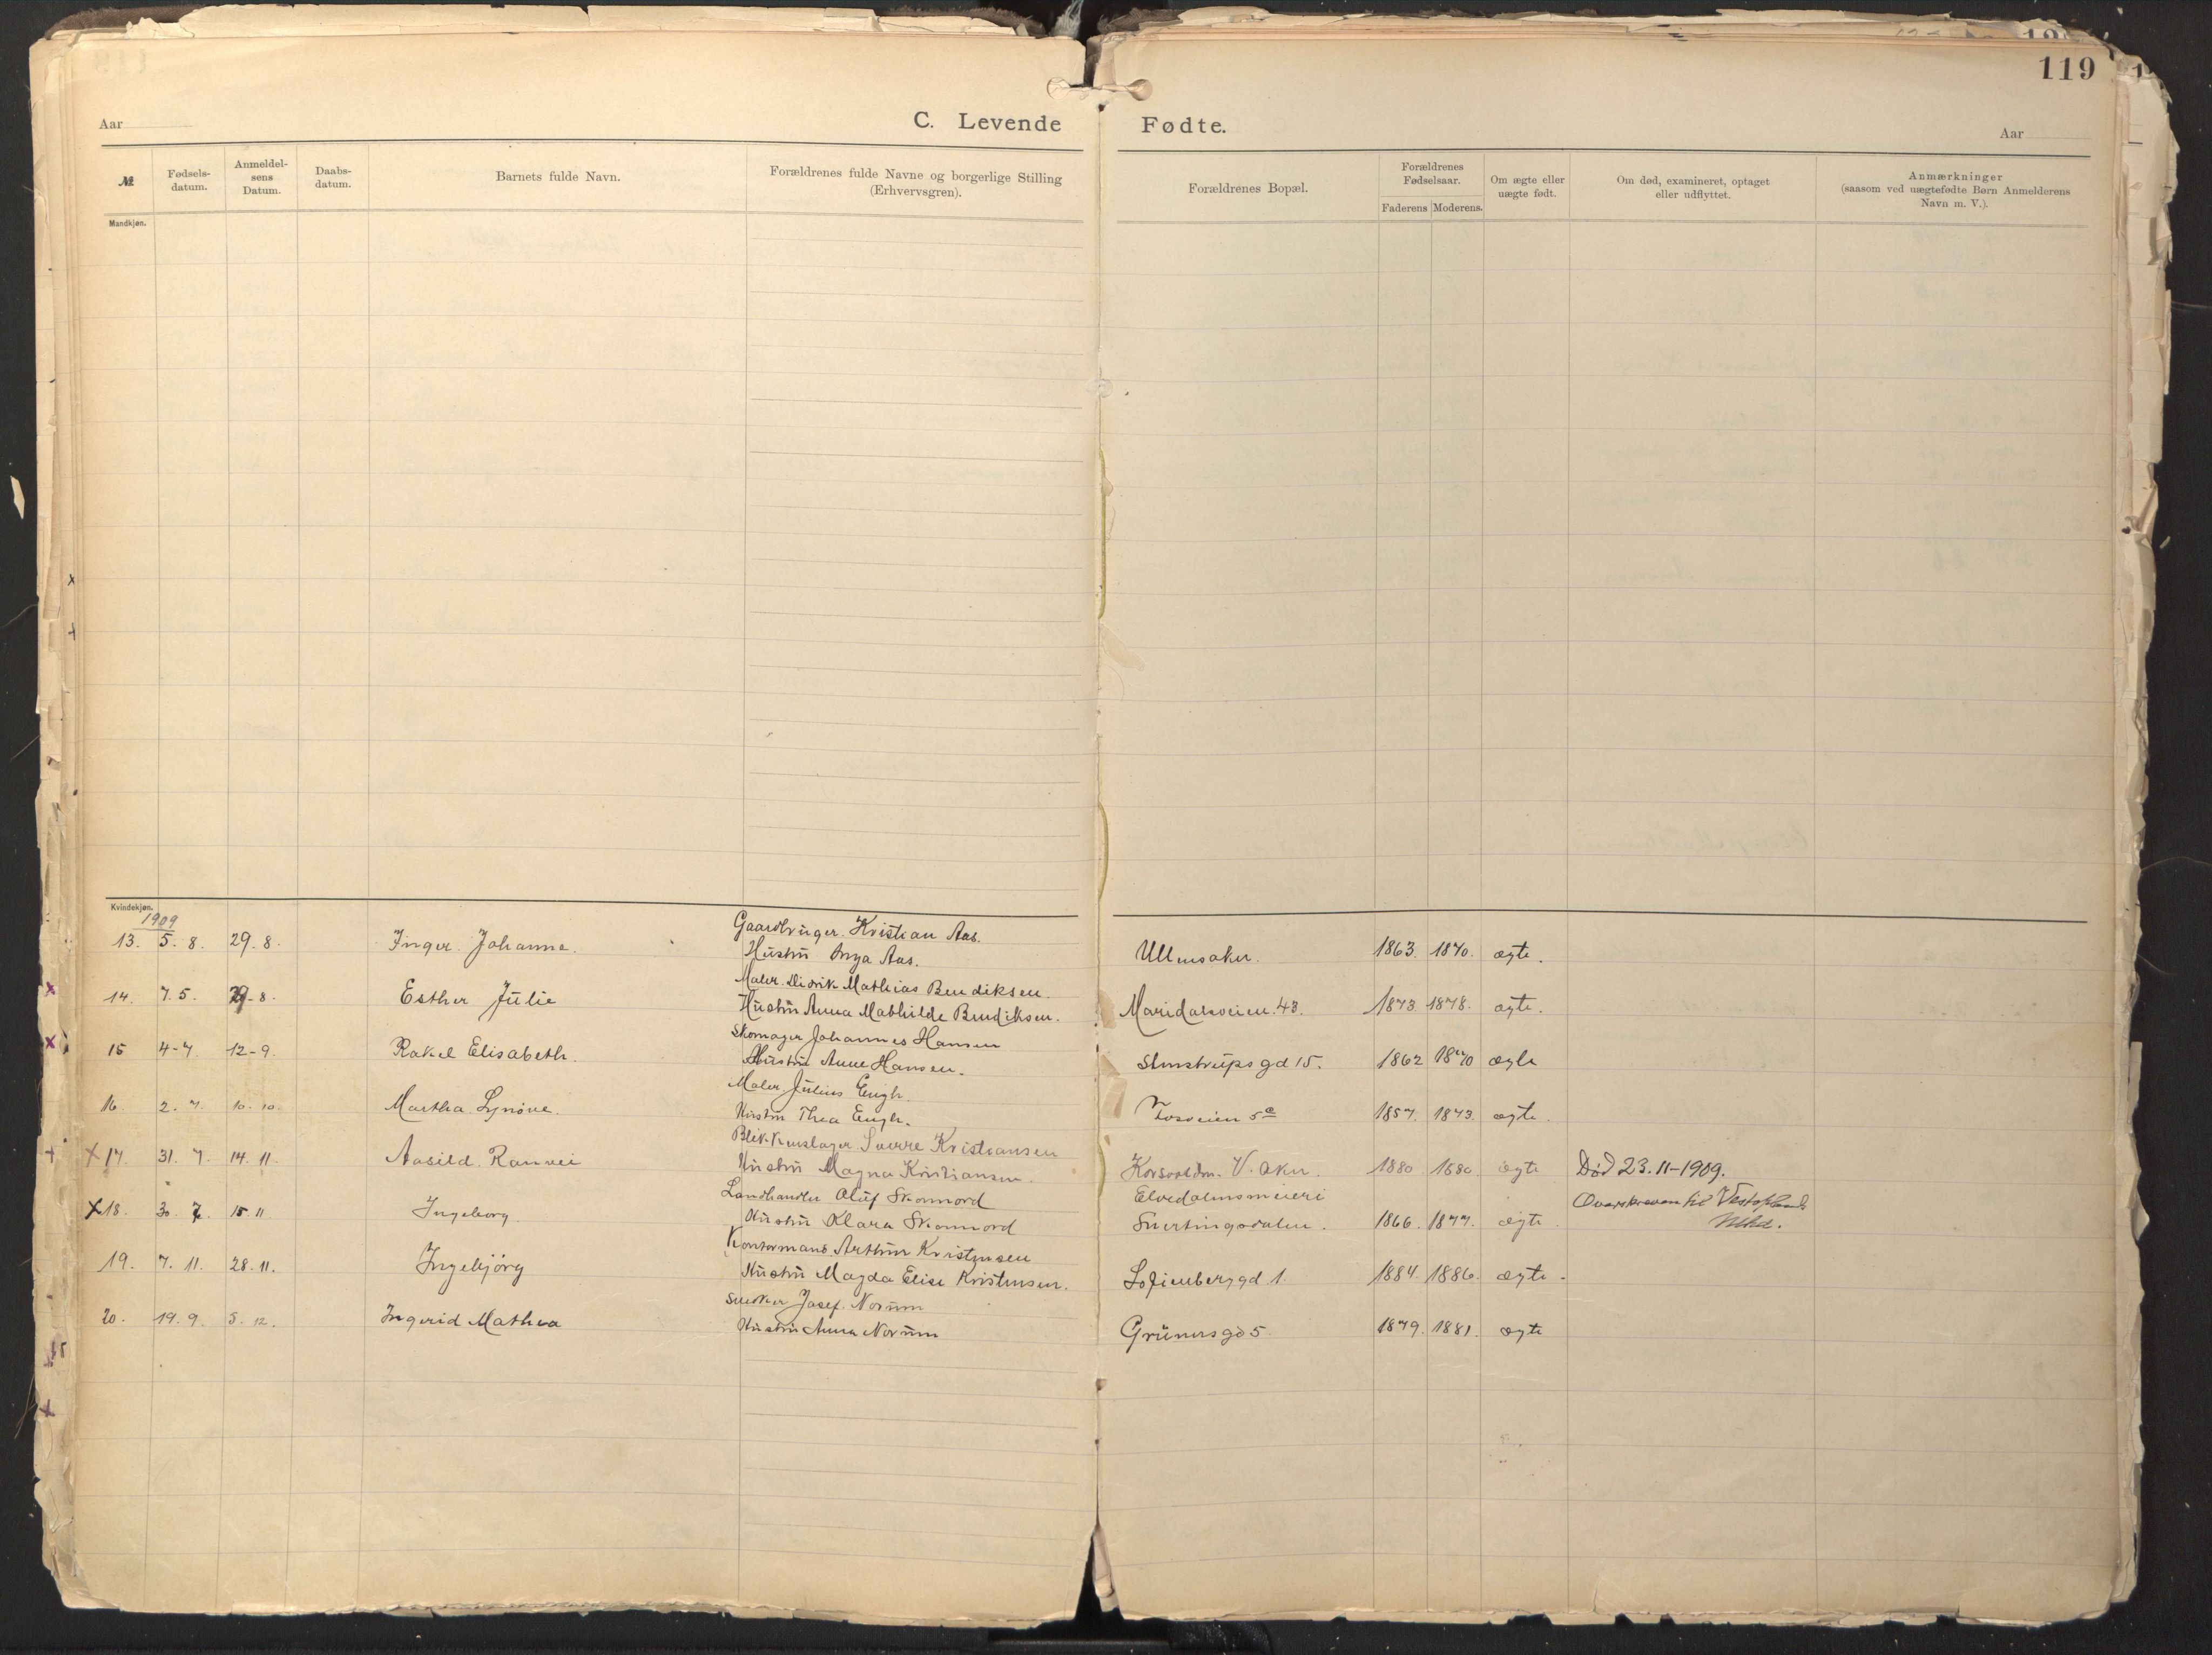 119
Aar
C. Levende Fødte.
Aar
№
Fødsels-
datum.
Anmeldel-
sens
Datum.
Daabs-
datum.
Barnets fulde Navn.
Forældrenes fulde Navne og borgerlige Stilling
(Erhvervsgren).
Forældrenes Bopæl.
Forældrenes
Fødselsaar.
Faderens Moderens.
Om ægte eller
uægte født.
Om død, examineret, optaget
eller udflyttet.
Anmærkninger
(saasom ved uægtefødte Børn Anmelderens
Navn m. V.).
Mandkjøn.
Kvindekjøn.
1909
Gaardbruger Kristian Aas.
13. 5. 8. 29. 8. Inger Johanne. Hustru Inga Aas. Ullensaker. 1863. 1870. ægte.
Maler Didrik Mathias Bendiksen.
14. 7. 5. 29-8. Esther Julie Hustru Anna Mathilde Bendiksen. Maridalsveien 43. 1873. 1878. ægte.
Skomager Johannes Hansen
15 4-7. 12-9. Rakel Elisabeth. Hustru Anne Hansen. gd 15. 1862 1870 ægte
Maler Julius Engh.
16 2. 7. 10. 10. Martha Synöve. Hustru Thea Engh. 5a 1857. 1873. ægte.
Blikkenslager Sverre Kristiansen
x 17 31. 7. 14. 11. Aasild Ranvei Hustru Magna Kristiansen. V. Aker. 1880 1880 ægte Død 23. 11-1909.
Landhandler Oluf Skonnord Elvedalens meieri Overskreven til Vestoplands
x 18. 30. 7. 15. 11. Ingeborg. Hustru Klara Skonnord Snertingsdalen. 1866. 1877. ægte Mhd.
Kontormand Arthur Kristensen
19. 7. 11. 28. 11. Ingebjörg Hustru Magda Elise Kristensen. Sofienberg gd 1. 1884. 1886. ægte.
Snedker Josef Norum
20. 19. 9. 5. 12. Ingerid Mathea Hustru Anna Norum Grünersgd 5. 1879. 1881. ægte